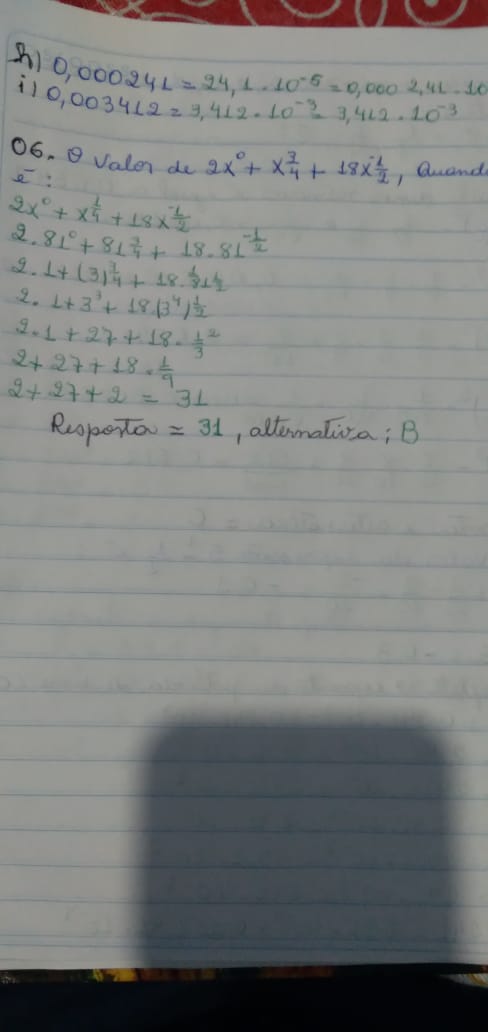 h) 0,000241 = 24,1 . 10⁻⁵ = 0,000 2,41 . 10
i) 0,003412 = 3,412 . 10⁻³ = 3,412 . 10⁻³
06. O Valor de 2x⁰ + x^3/4 + 18x^-1/2, Quand
é :
2x⁰ + x^1/4 + 18x^-1/2
2. 81⁰ + 81^3/4 + 18. 81^-1/2
2. 1 + (3)^3/4 + 18. 1/81^1/2
2. 1 + 3³ + 18.(3⁴)^1/2
2. 1 + 27 + 18. 1/3²
2 + 27 + 18 . 1/9
2 + 27 + 2 = 31
Resposta = 31, alternativa ; B